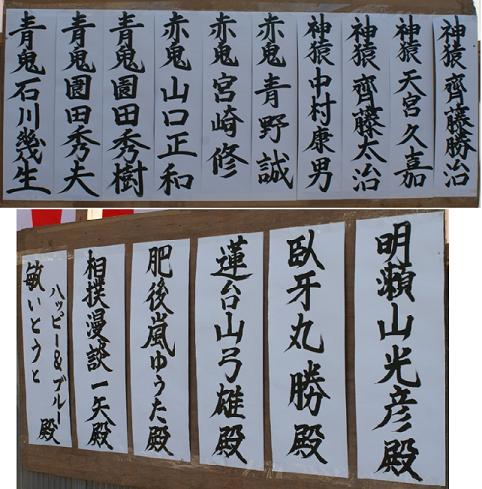 神猿 齊藤勝治
神猿 天宮久嘉
神猿 齊藤太治
神猿 中村康男
赤鬼 青野誠
赤鬼 宮崎修
赤鬼 山口正和
青鬼 園田秀樹
青鬼 園田秀夫
青鬼 石川幾生
明瀬山光彦殿
臥牙丸勝殿
蓮台山弓雄殿
肥後嵐ゆうた殿
相撲漫談一矢殿
敏いとうと
ハッピー&ブルー殿